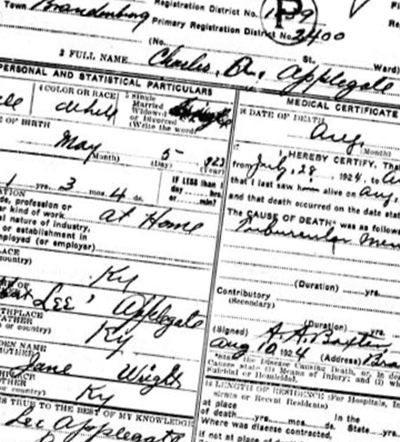 Town Brandenburg Registration District No. 1
Primary Registration District No. 2400
(No. St. Ward)
2 FULL NAME Charles B. Applegate
PERSONAL AND STATISTICAL PARTICULARS
MEDICAL CERTIFICATE
4 COLOR OR RACE White
5 Single
Married
Widowed
or Divorced
(Write the word) Single
DATE OF DEATH
Aug.
(Month)
OF BIRTH
May 5 923
(Month) (Day) (Year)
I HEREBY CERTIFY, Tha
from July 28 1924, to Au
that I last saw him alive on Aug.
and that death occurred on the date state
The CAUSE OF DEATH was as follow
Tubercular Men
1 yrs. 3 mos. 4 ds.
IF LESS than 1
day hrs.
or min?
ATION
ade, profession or
ar kind of work at Home
al nature of industry,
or establishment in
mployed (or employer)
LACE
country) Ky
(Duration) yrs.
Contributory
(Secondary)
(Duration) yrs.
OF
Lee Applegate
THPLACE
FATHER
or country) Ky
(Signed) A. A. Baxter
Aug 10, 1924 (Address) Bran
DEN NAME
MOTHER
Jane Wright
State the Disease Causing Death, or, in
Causes state (1) Means of Injury; and (2) wh
Suicidal or Homicidal.
THPLACE
Ky
LENGTH OF RESIDENCE (For Hospitals,
sients or Recent Residents)
At place
of death yrs. mos. ds. In the
State yrs.
Where was disease contracted,
if not at place of
IS TRUE TO THE BEST OF MY KNOWLEDG
Lee Applegate